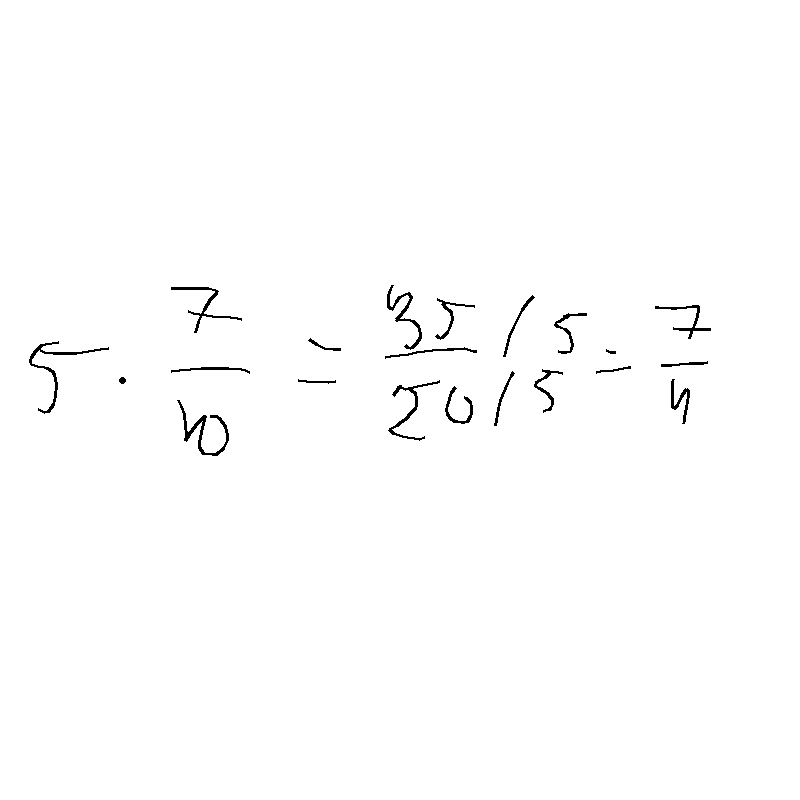 5 · \frac{7}{10} = \frac{35/5}{20/5} = \frac{7}{4}